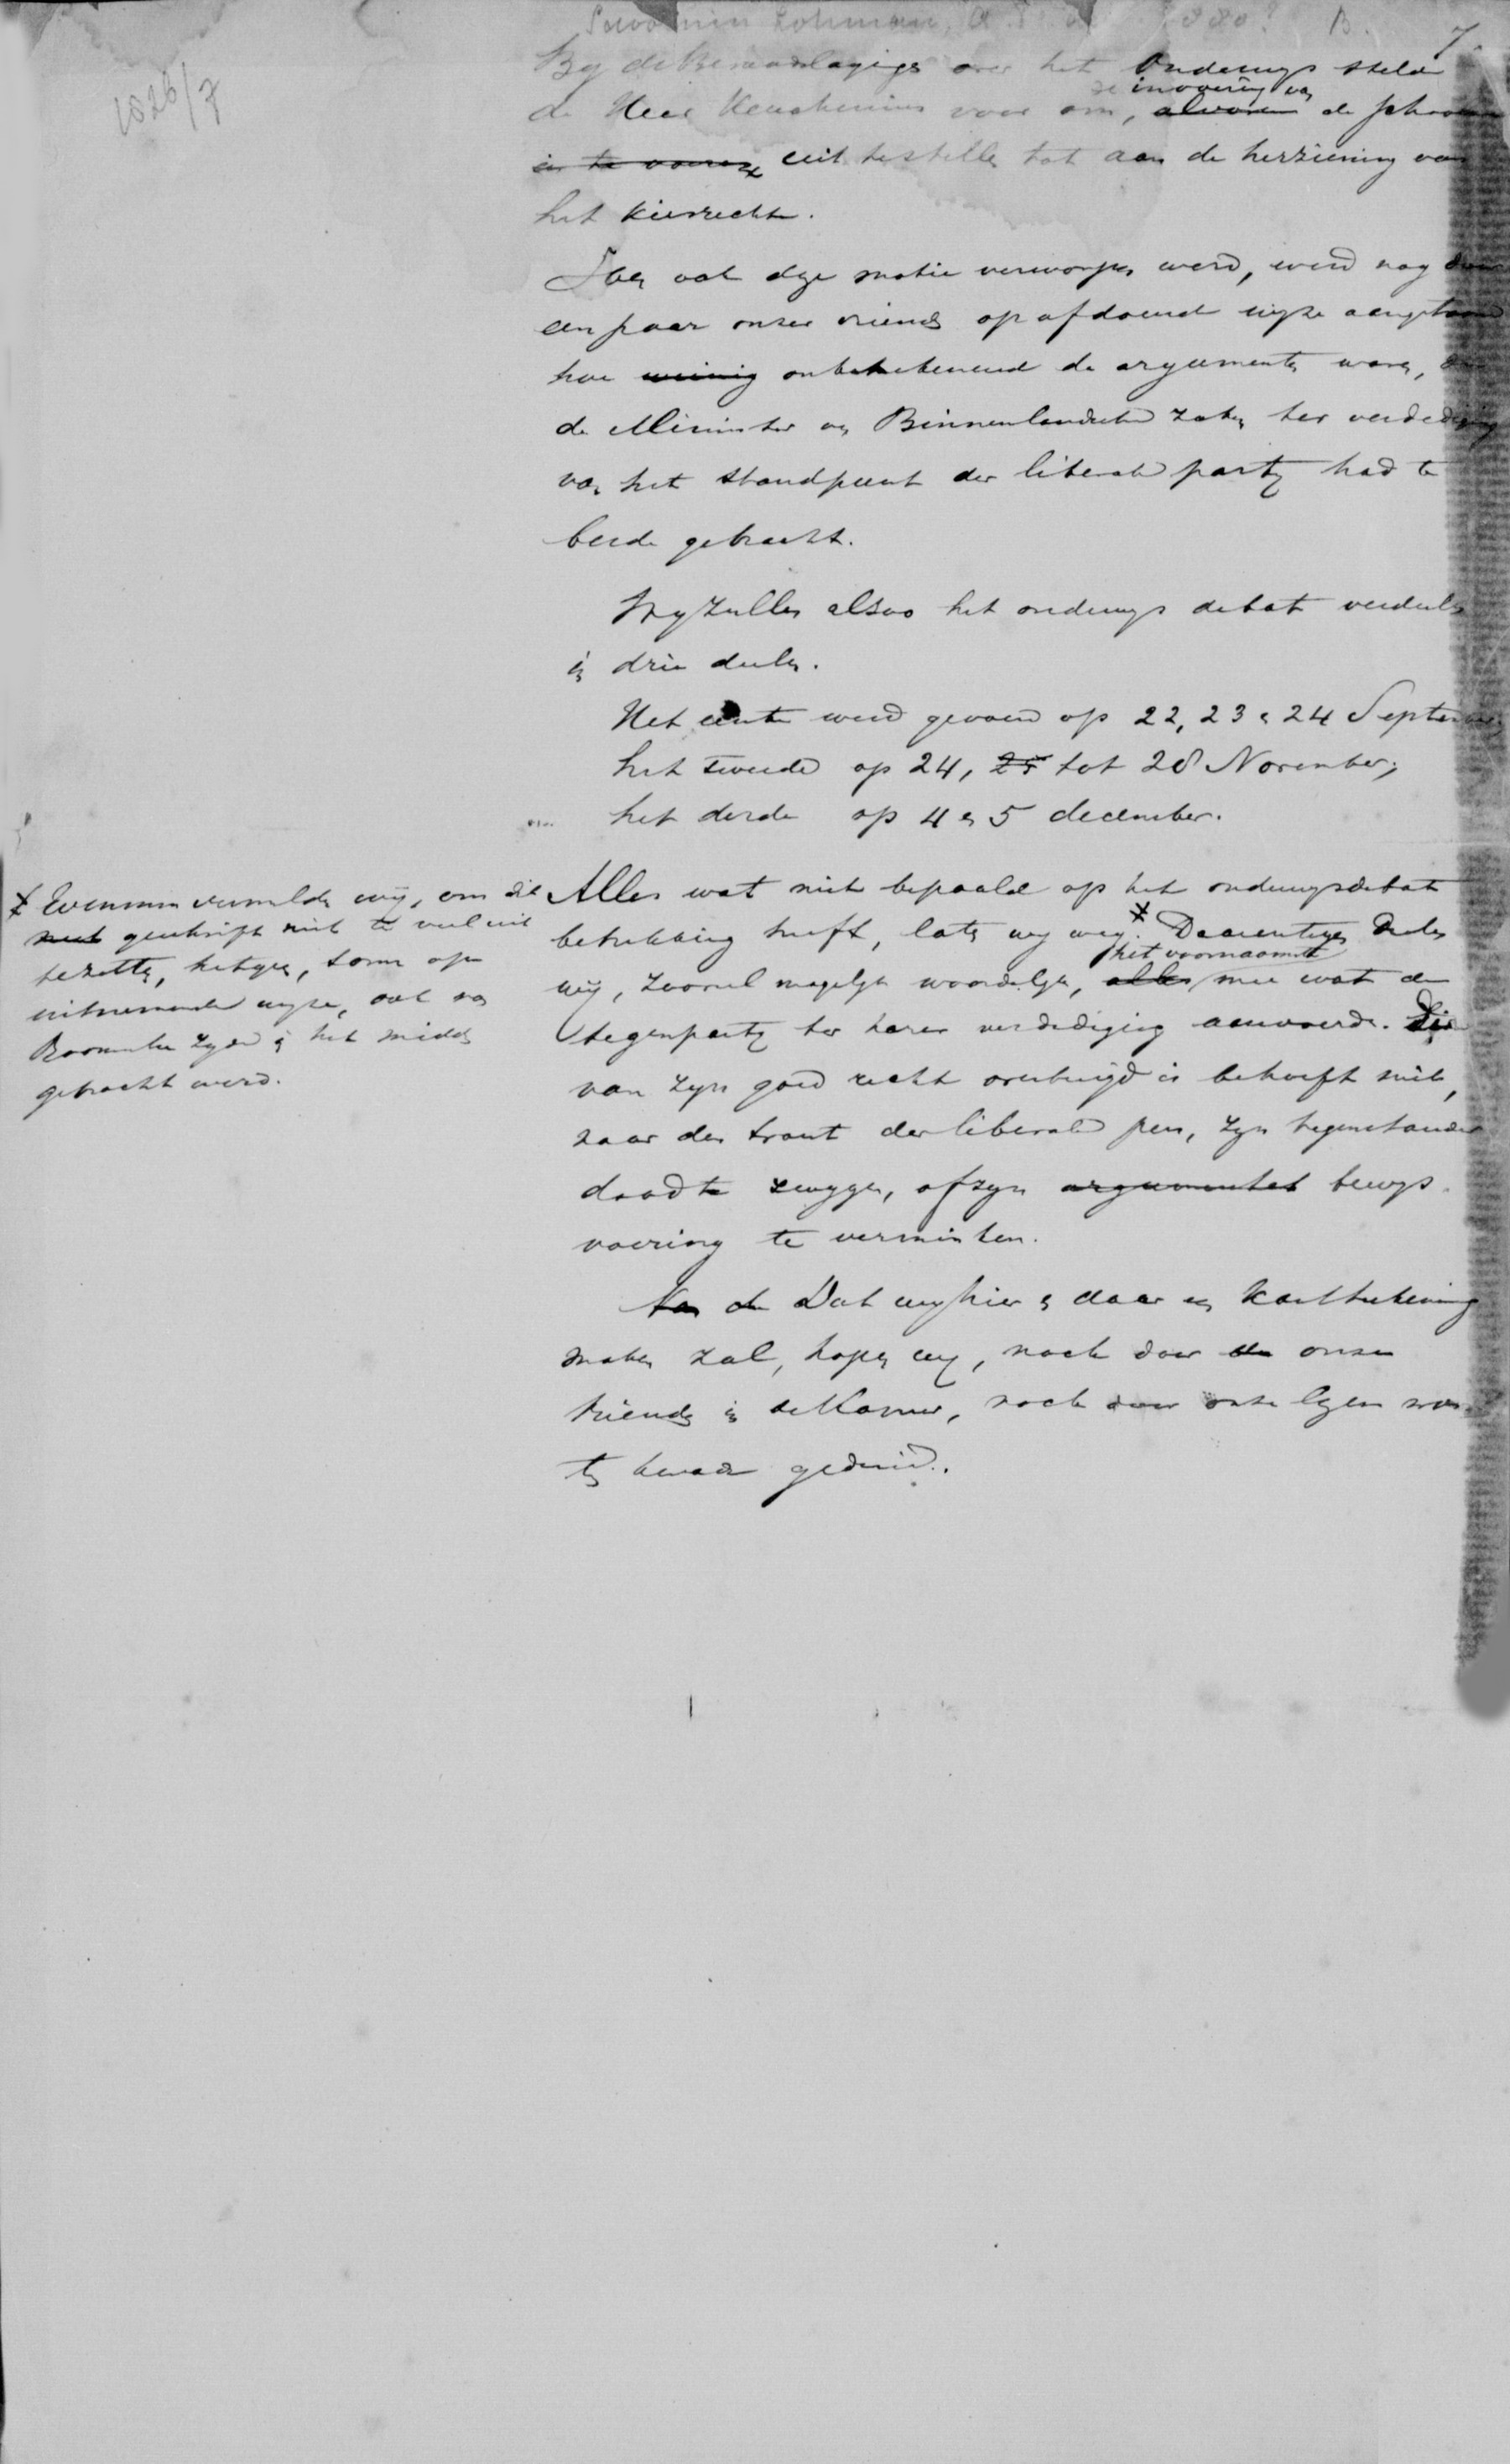 Savornin Lohman, A. F. de 1880? B. 7.
1826/7
By de Beraadslagingen over het Onderwys stelde
de invoering van
de Heer Keuchenius voor om, alvorens de schoolwet
in te voeren uit te stellen tot aan de herziening van
het kiesrecht.
Toen ook deze motie verworpen werd, werd nog door
een paar onzer vrienden op afdoende wyze aangetoond
hoe weinig onbeteekenend de argumenten waren, die
de Minister van Binnenlandsche Zaken ter verdediging
van het standpunt der liberale party had te
berde gebracht.
Wy zullen alzoo het onderwys debat verdeelen
in drie deelen.
Het eerste werd gevoerd op 22, 23 en 24 September
het tweede op 24, 25 tot 28 November;
het derde op 4 en 5 december.
Alles wat niet bepaald op het onderwysdebat
betrekking heeft, laten wy weg. Daarentegen deelen
het voornaamste
wij, zooveel mogelyk woordelyk, alles mee wat de
tegenparty ter harer verdediging aanvoerde. Die
van zyn goed recht overtuigd is behoeft niet,
naar den trant der liberale pers, zyn tegenstander
dood te zwygen, of zyn argumenten bewys-
voering te verminken.
Dat wy hier en daar een kantteekening
maken zal, hopen wy, noch door de onze
vrienden in de Kamer, noch door onze lezers wor-
den ten kwade geduid.
Evenmin vermelden wij, om dit
niet geschrift niet te veel uit
te zetten, hetgeen, soms op
uitnemende wyze, ook van
Roomsche zyde in het midden
gebracht werd.